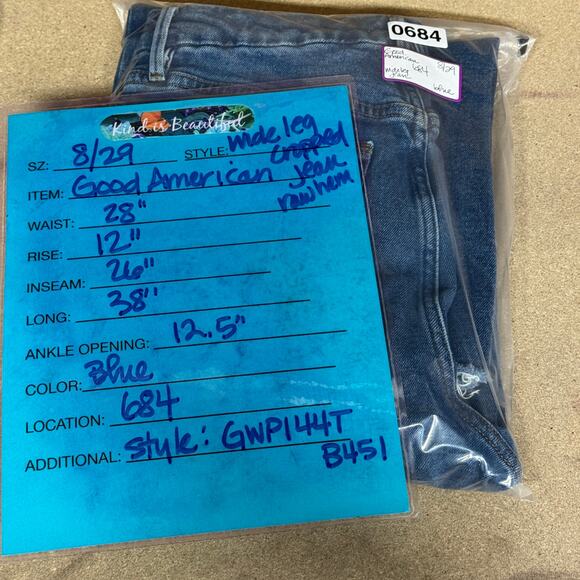 0684
Good 8/29
American 684
wide leg
jean blue
Kind is Beautiful
SZ: 8/29 STYLE: wide leg
cropped
ITEM: Good American jean
raw hem
WAIST: 28"
RISE: 12"
INSEAM: 26"
LONG: 38"
ANKLE OPENING: 12.5"
COLOR: Blue
LOCATION: 684
ADDITIONAL: Style: GWP144T
B451